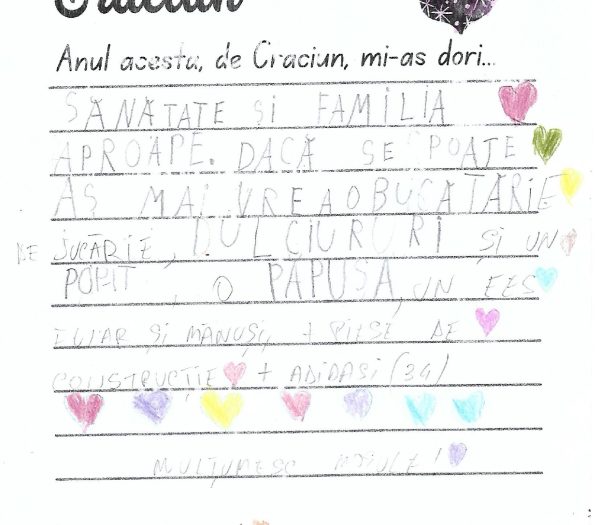 Craciun
Anul acesta, de Craciun, mi-as dori...
SANATATE ȘI FAMILIA
APROAPE. DACĂ SE POATE
AȘ MAI VREA O BUCATARIE
DE JUCĂRIE, DULCIURI ȘI UN
POPIT, O PĂPUSA, UN FES
FULAR ȘI MĂNUȘI, + PIESE DE
CONSTRUCȚIE + ADIDAȘI (34)
MULȚUMESC